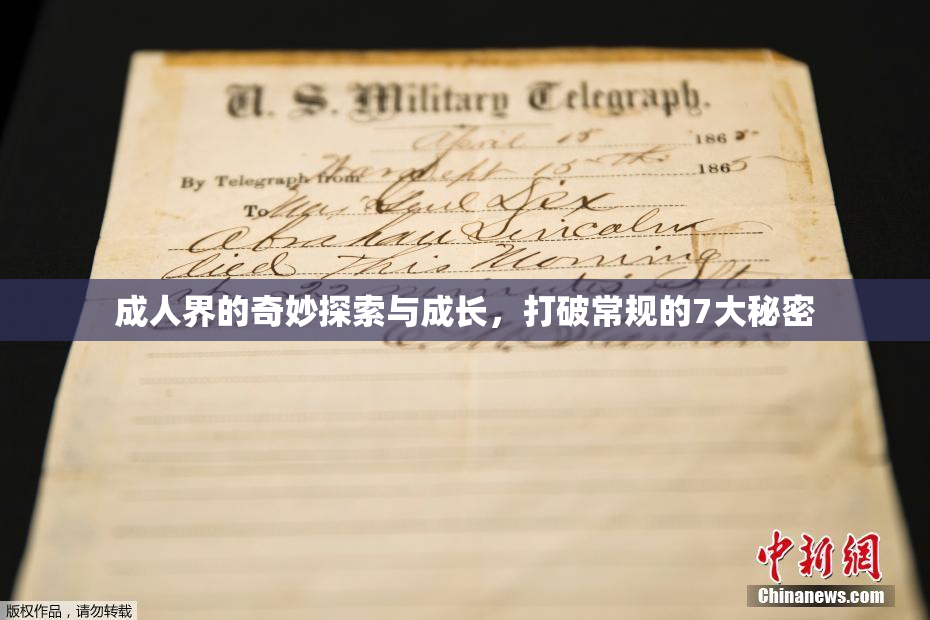 U. S. Military Telegraph.
April 15 1865
By Telegraph from War Dept 15th 1865
To Maj Genl Dix
Abraham Lincoln
died this morning
22 minutes after
成人界的奇妙探索与成长，打破常规的7大秘密
中新網
Chinanews.com
版权作品，请勿转载